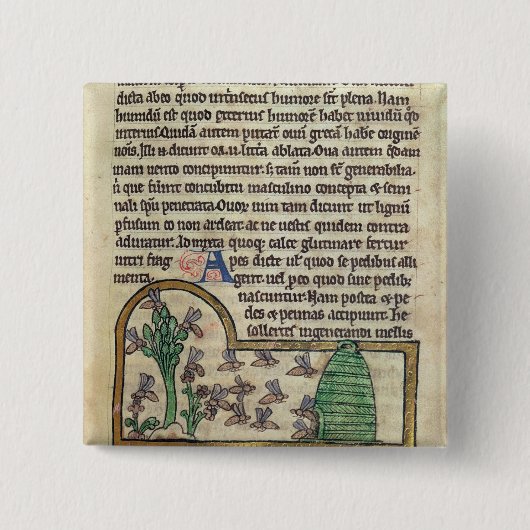 dicta ab eo quod intrinsecus humore sit plena. Nam
humidum est quod exterius humorem habet uiuidum qd
interius. Quidam autem putant oui grecam habe originem
nois. Illi n dicunt littera ablata. Oua autem qdam
inani uento concipiuntur. s; tam non st generabilia.
n que fuint concubitu masculino concepta & semi
nali spu penetrata. Ouor uim tam dicunt ut lignum
pfusum eo non ardeat. ac ne uestis quidem contra
aduratur. Admixta quoq; calce glutinare fertur
uitri frag Apes dicte ul quod se pedibus alli
menta. gent. uel p eo quod sine pedib;
nascuntur. Nam postea & pe
des & pennas accipiunt. he
sollertes in generandi mellis